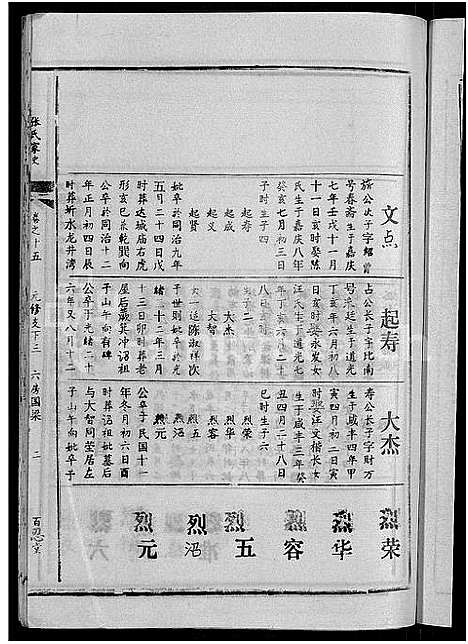 张氏家史
卷之十五
元修支下三
六房国梁
二
百忍堂
文点
旂公次子字绍曾
号春斋生于嘉庆
七年壬戌十一月
十一日亥时娶陈
氏生于嘉庆八年
癸亥七月初三日
子时生子四
起寿
起成
起义
起贤
妣卒于同治九年
五月二十四日戌
时葬达城庙右虎
形亥巳兼乾巽向
公卒于同治十二
年正月初四日辰
时葬圻水龙井湾
起寿
占公长子字比南
号苑廷生于道光
丁亥年六月初八
日亥时娶永发女
汪氏生于道光七
年丁亥六月二十
八日
生子二
大杰
大智
女一适涤淑祥次
子世则妣卒于光
绪二十二年三月
十三日卯时葬老
屋后簸箕冲诏祖
山子午向有碑
公卒于光绪二十
六年又八月十二
大杰
寿公长子字时万
生于咸丰四年甲
寅四月初二日寅
时娶汪文楷长女
生于咸丰三年癸
丑四月二十八日
巳时生子六
烈荣
烈华
烈容
烈五
烈沼
烈元
公卒于民国十一
年冬月初六日酉
时葬诏祖妣墓后
与大智同茔居左
子山午向妣卒于
烈荣
烈华
烈容
烈五
烈沼
烈元